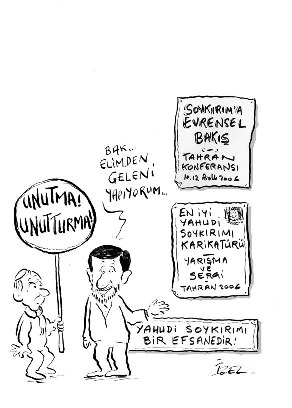 'SOYKIRIM'A
EVRENSEL
BAKIŞ
TAHRAN
KONFERANSI
10.12 Aralık 2006
BAK..
ELİMDEN
GELENİ
YAPIYORUM...
UNUTMA!
UNUTTURMA!
EN İYİ
YAHUDİ
SOYKIRIMI
KARİKATÜRÜ
YARIŞMA
VE
SERGİ
TAHRAN 2006
YAHUDİ SOYKIRIMI
BİR EFSANEDİR!
İZEL..